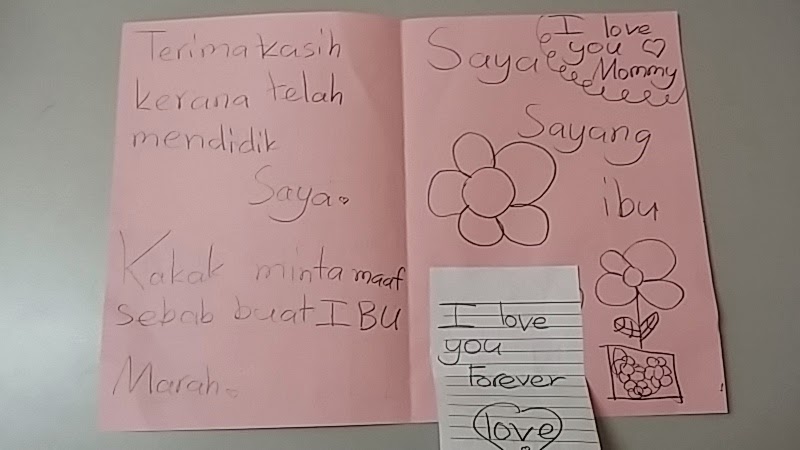 Terima kasih
kerana telah
mendidik
Saya
Kakak minta maaf
sebab buat IBU
Marah.
Saya
I love
you
Mommy
Sayang
ibu
I love
you
Forever
love